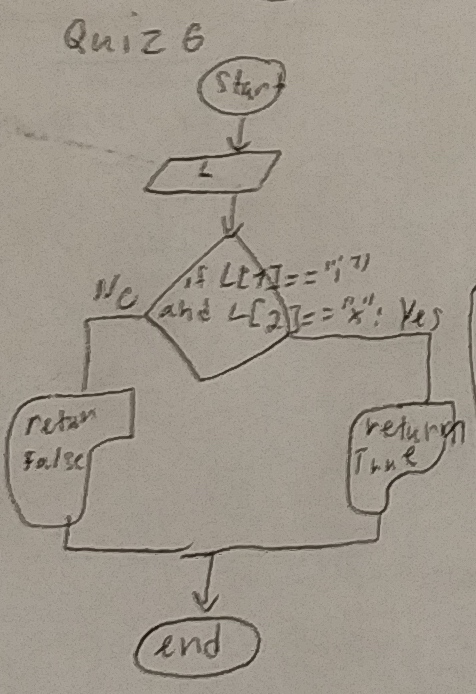 Quiz 6
Start
L
if L[1]=="i"
and L[2]=="x":
No
Yes
return
False
return
True
end